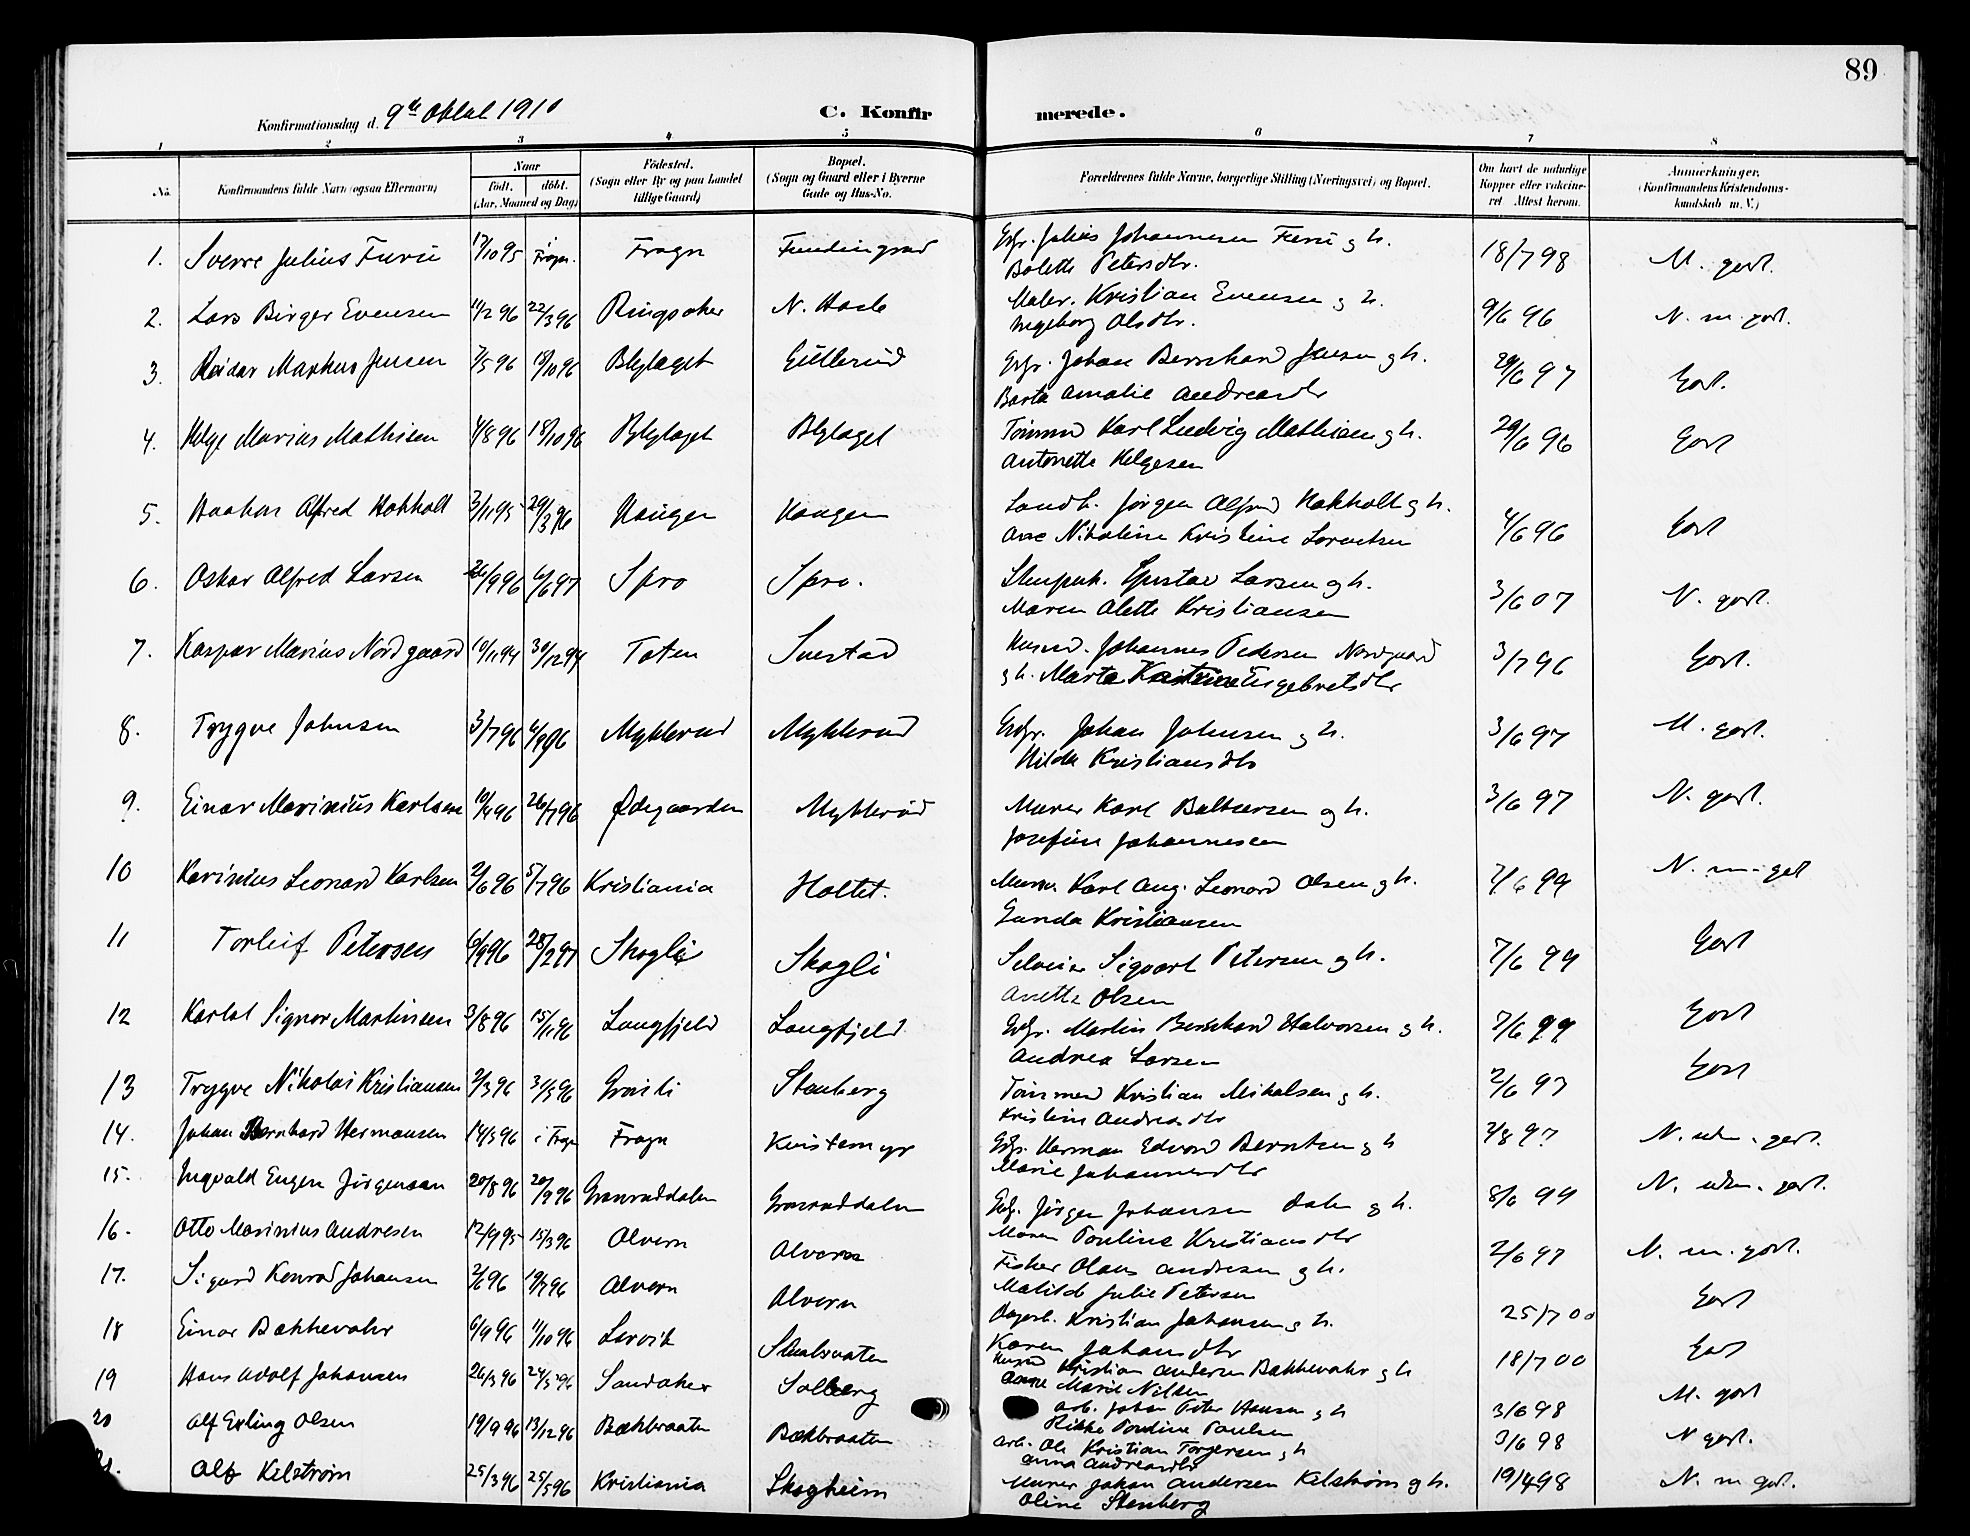 89
Konfirmationsdag d. 9de Oktbl 1910
C. Konfirmerede.
1 2 3 4 5 6 7 8
No.
Konfirmandens fulde Navn (ogsaa Efternavn)
Naar
født. døbt.
(Aar, Maaned og Dag)
Fødested.
(Sogn eller By og paa Landet
tillige Gaard)
Bopæl.
(Sogn og Gaard eller i Byerne
Gade og Hus-No.
Forældrenes fulde Navne, borgerlige Stilling (Næringsvei) og Bopæl.
Om havt de naturlige
Kopper eller vakcine-
ret Attest herom.
Anmerkninger,
(Konfirmandens Kristendoms-
kundskab m. V.)
1. Sverre Julius Furu 17/10 95 i Frogn. Frogn Gbr. Julius Johannesen Furu g h. 18/7 98 M. godt.
Bolette Petersdtr.
2. Lars Birger Evensen 11/2 96 22/3 96 Ringsaker N. Hasle Maler. Kristian Evensen g h. 9/6 96 N. m. godt.
Ingeborg Olsdtr.
3. Reidar Markus Jensen 7/5 96 18/10 96 Blylaget Gullerud Gbr. Johan Bernhard Jensen g h. 29/6 97 Godt.
Amalie Andreasdtr
4. Helge Marius Mathisen 4/8 96 18/10 96 Blylaget Blylaget Tømmd Karl Ludvig Mathisen g h. 29/6 96 Godt
Antonette Helgesen
5. Haakon Alfred Hokholt 3/11 95 29/3 96 Haugen Haugen Landh. Jørgen Alfred Hokholt g h. 4/6 96 Godt
Nikoline Kristine Lorentsen
6. Oskar Alfred Larsen 26/9 96 6/6 97 Spro Spro. Gustav Larsen og h. 3/6 07 N. godt.
Maren Olette Kristiansen
7. Kaspar Marius Nordgaard 10/11 94 30/12 94 Toten Svestad Husmd. Johannes Pedersen Nordgaard 3/7 96 Godt.
g h. Marta Engebretsdtr
8. Trygve Johnsen 3/7 96 6/9 96 Myklerud Myklerud Gbr. Johan Johnsen g h. 3/6 97 M. godt.
Hilda Kristiansdtr
9. Einar Marinius Karlsen 10/4 96 26/7 96 Ødegaarden Myklerud Murer Karl Baltsersen og h. 3/6 97 N. godt.
Josefine Johannesen
10 Karinius Leonard Karlsen 2/6 96 5/7 96 Kristiania Holtet. Murer Karl Aug. Leonard Olsen g h. 7/6 99 N. m. godt
Gunda Kristiansen
11 Torleif Petersen 6/9 96 28/2 97 Skogli Skogli Sigvart Petersen og h. 7/6 99 Godt
Anette Olsen
12 Karlot Signor Martinsen 3/8 96 15/11 96 Langfjeld Langfjeld Gbr. Martin Bernhard Halvorsen g h. 7/6 99 Godt
Andrea Larsen
13 Trygve Nikolai Kristiansen 2/3 96 31/5 96 Granli Stenberg Tømmed Kristian Mikalsen g h. 2/6 97 Godt
Kristine Andreasdtr
14. Johan Bernhard Hermansen 14/3 96 i Frogn Frogn Kvistemyr Gbr. Herman Edvard Berntsen g h 2/8 97 N. udm. godt.
Marie Johannesdtr
15. Ingvald Eugen Jørgensen 20/8 96 20/9 96 Granruddalen Granruddalen Gbr. Jørgen Johansen Dalen g h. 8/6 99 N. udm. godt.
Maren Pauline Kristiansdtr
16. Otto Marinius Andresen 12/9 95 15/3 96 Alvern Alvern Fisker Olaus Andresen g h. 2/6 97 N. m. godt.
Matilde Julie Petersen
17. Sigurd Konrad Johansen 2/6 96 19/7 96 Alvern Alvern Dagarb. Kristian Johansen g h. 25/7 00 Godt
Karen Johansdtr
18 Einar Bækkevahr 6/9 96 11/10 96 Larvik Husmd Kristian Andersen Bækkevahr g h 18/7 00 Godt
Anne Marie Nilsen
19 Hans Adolf Johansen 26/3 96 24/5 96 Sandaker Solberg Arb. Johan Peter Hansen g h 3/6 98 M. godt
Rikke Pauline Paulsen
20 Alf Erling Olsen 19/9 96 13/12 96 Bækbraaten Bækbraaten Arb. Ole Kristian Torgersen g h 3/6 98 N godt.
Anna Andreasdtr
21. Alf Kelstrøm 25/3 96 25/5 96 Kristiania Skogheim Murer Johan Andersen Kelstrøm g h. 19/4 98 N. m godt.
Oline Stenberg